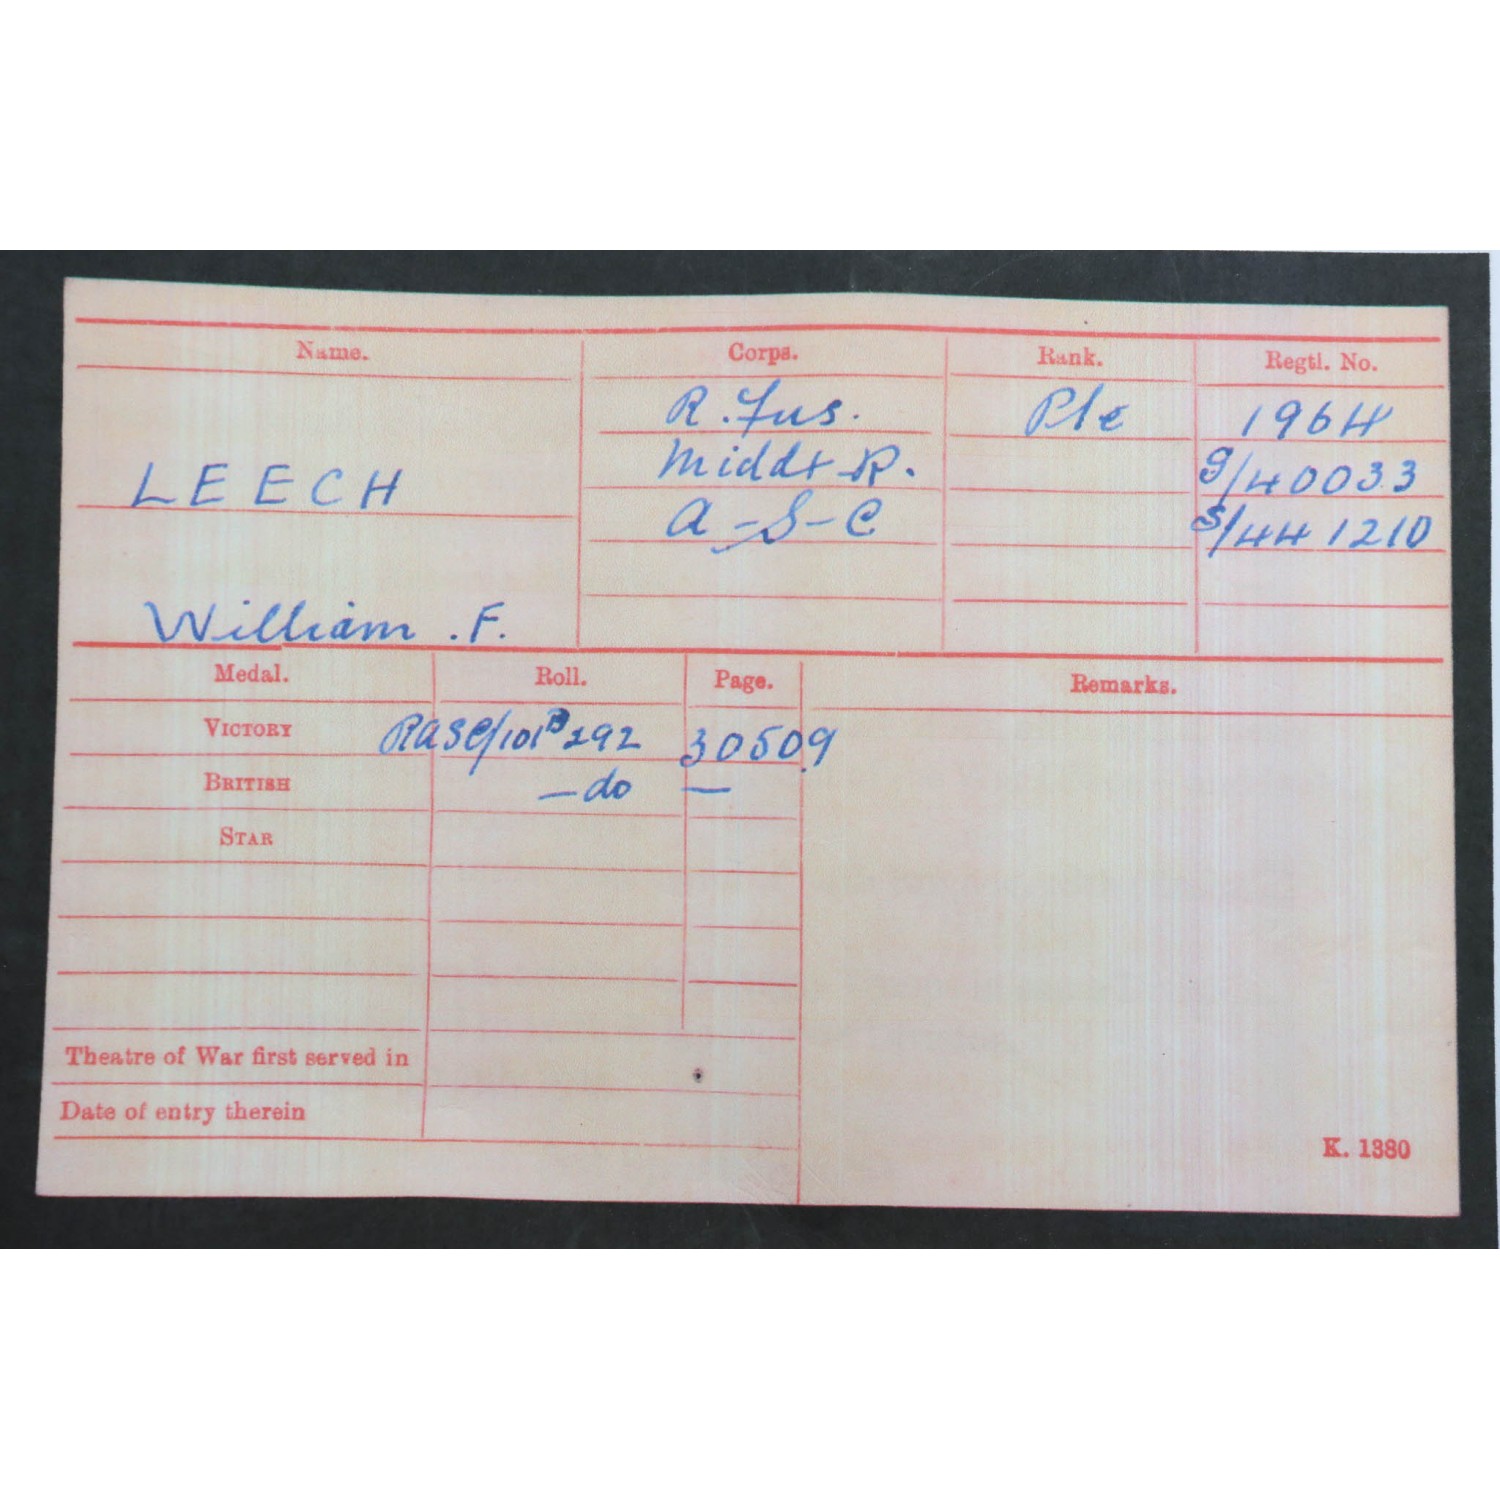 Name. Corps. Rank. Regtl. No.
R. Fus. Pte 1964
LEECH Middx R. G/40033
A-S-C S/441210
William . F.
Medal. Roll. Page. Remarks.
VICTORY RASC/101B292 30509
BRITISH — do —
STAR
Theatre of War first served in
Date of entry therein
K. 1380